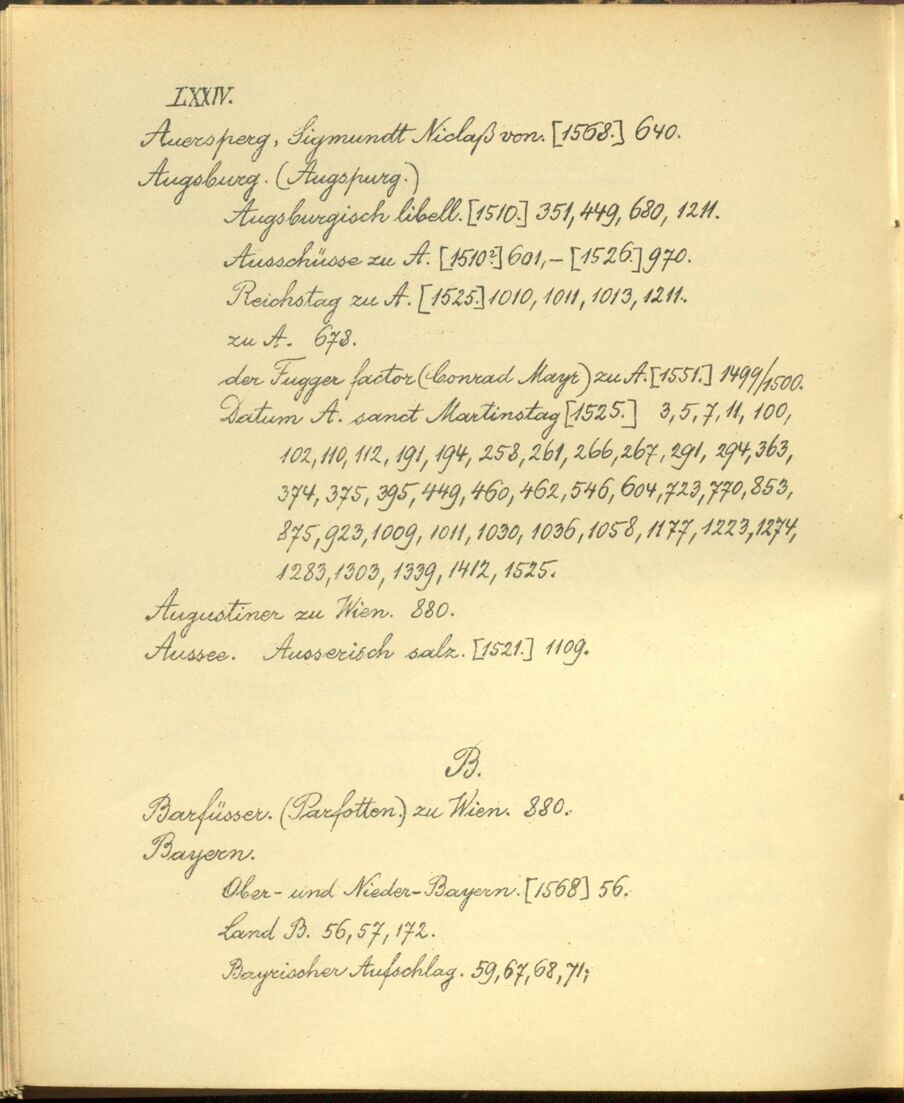 LXXIV.
Auersperg, Sigmundt Niclaß von. [1568.] 640.
Augsburg. (Augspurg.)
Augsburgisch libell. [1510.] 351, 449, 680, 1211.
Ausschüsse zu A. [1510?] 601, – [1526.] 970.
Reichstag zu A. [1525.] 1010, 1011, 1013, 1211.
zu A. 678.
der Fugger factor (Conrad Mayr) zu A. [1551.] 1499/1500.
Datum A. sanct Martinstag [1525.] 3, 5, 7, 11, 100,
102, 110, 112, 191, 194, 258, 261, 266, 267, 291, 294, 363,
374, 375, 395, 449, 460, 462, 546, 604, 723, 770, 853,
875, 923, 1009, 1011, 1030, 1036, 1058, 1177, 1223, 1274,
1283, 1303, 1339, 1412, 1525.
Augustiner zu Wien. 880.
Aussee. Ausserisch salz. [1521.] 1109.
B.
Barfüsser. (Parfotten.) zu Wien. 880.
Bayern.
Ober- und Nieder-Bayern. [1568] 56.
Land B. 56, 57, 172.
Bayrischer Aufschlag. 59, 67, 68, 71;